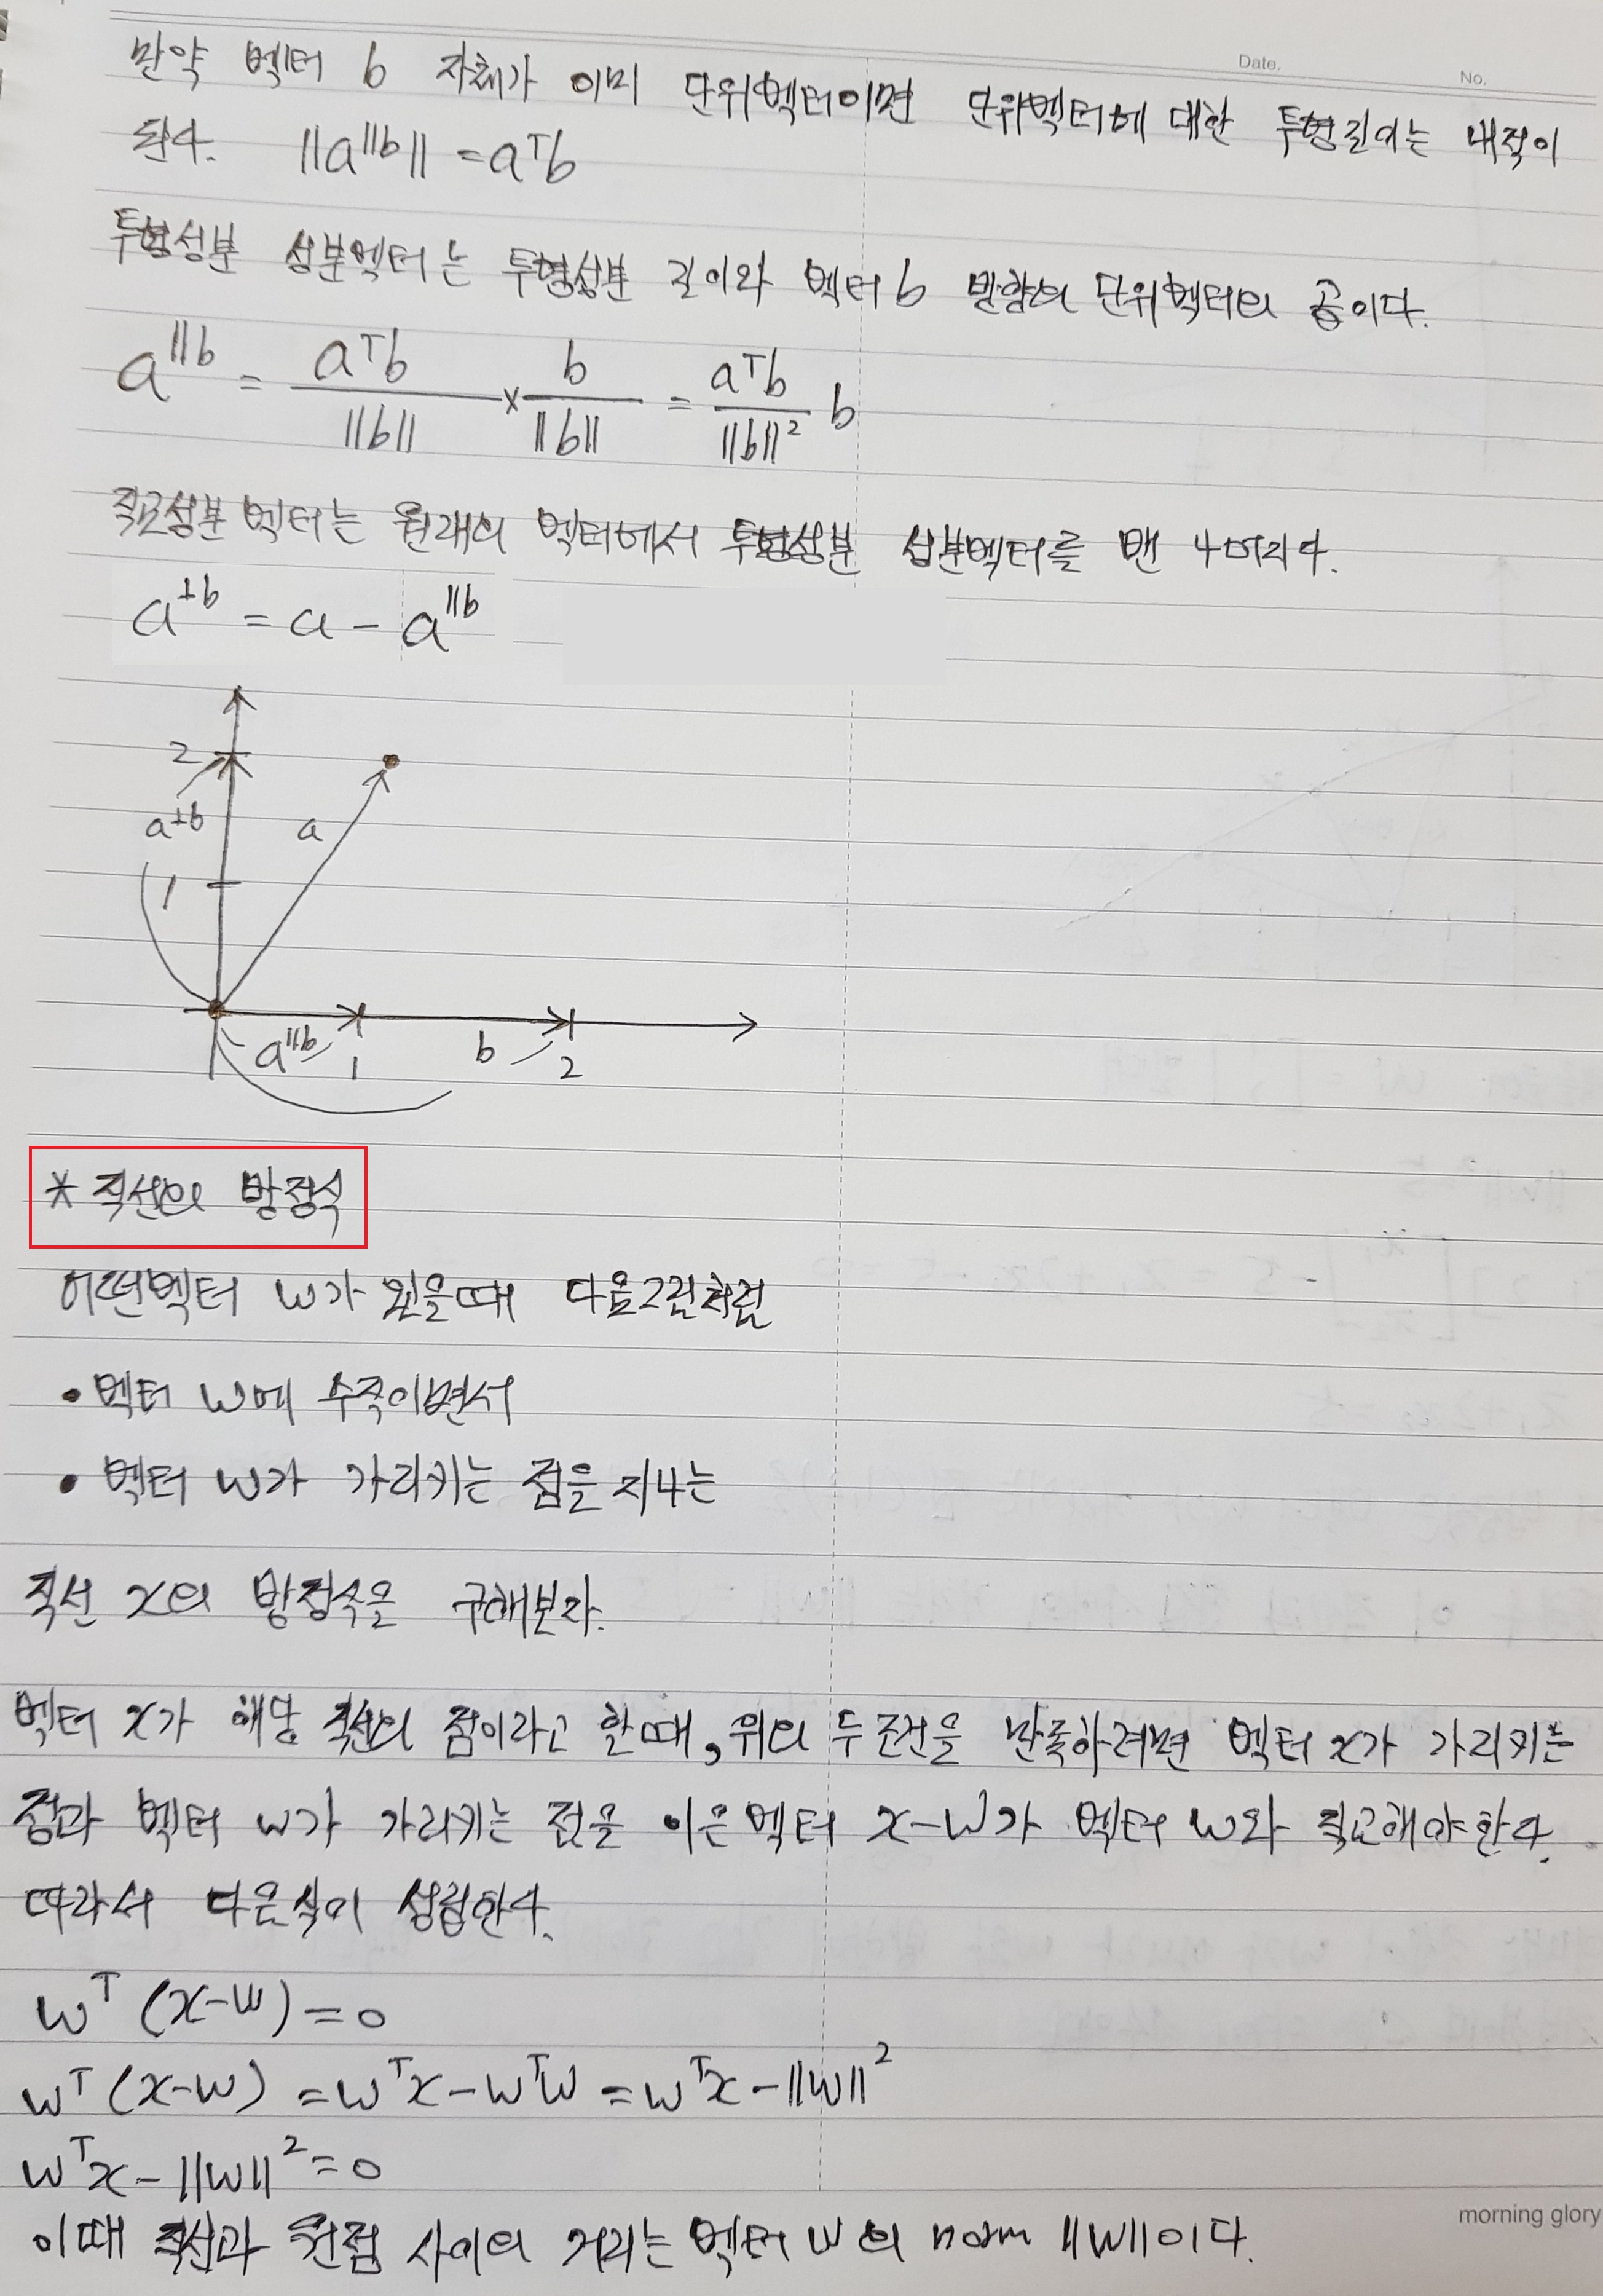 Date.
No.
만약 벡터 b 자체가 이미 단위벡터이면 단위벡터에 대한 투영길이는 내적이
된다. ||a^||b|| = a^T b
투영성분 성분벡터는 투영성분 길이와 벡터 b 방향의 단위벡터의 곱이다.
a^||b = a^T b / ||b|| × b / ||b|| = a^T b / ||b||² b
직교성분 벡터는 원래의 벡터에서 투영성분 성분벡터를 뺀 나머지다.
a^⊥b = a - a^||b
2
a^⊥b
a
1
a^||b
1
b
2
* 직선의 방정식
어떤벡터 w가 있을때 다음그림처럼
• 벡터 w에 수직이면서
• 벡터 w가 가리키는 점을 지나는
직선 x의 방정식을 구해보자.
벡터 x가 해당 직선의 점이라고 할때, 위의 두 조건을 만족하려면 벡터 x가 가리키는
점과 벡터 w가 가리키는 점을 이은 벡터 x-w가 벡터 w와 직교해야한다.
따라서 다음식이 성립한다.
w^T (x-w) = 0
w^T (x-w) = w^T x - w^T w = w^T x - ||w||²
w^T x - ||w||² = 0
이때 직선과 원점 사이의 거리는 벡터 w의 norm ||w||이다.
morning glory